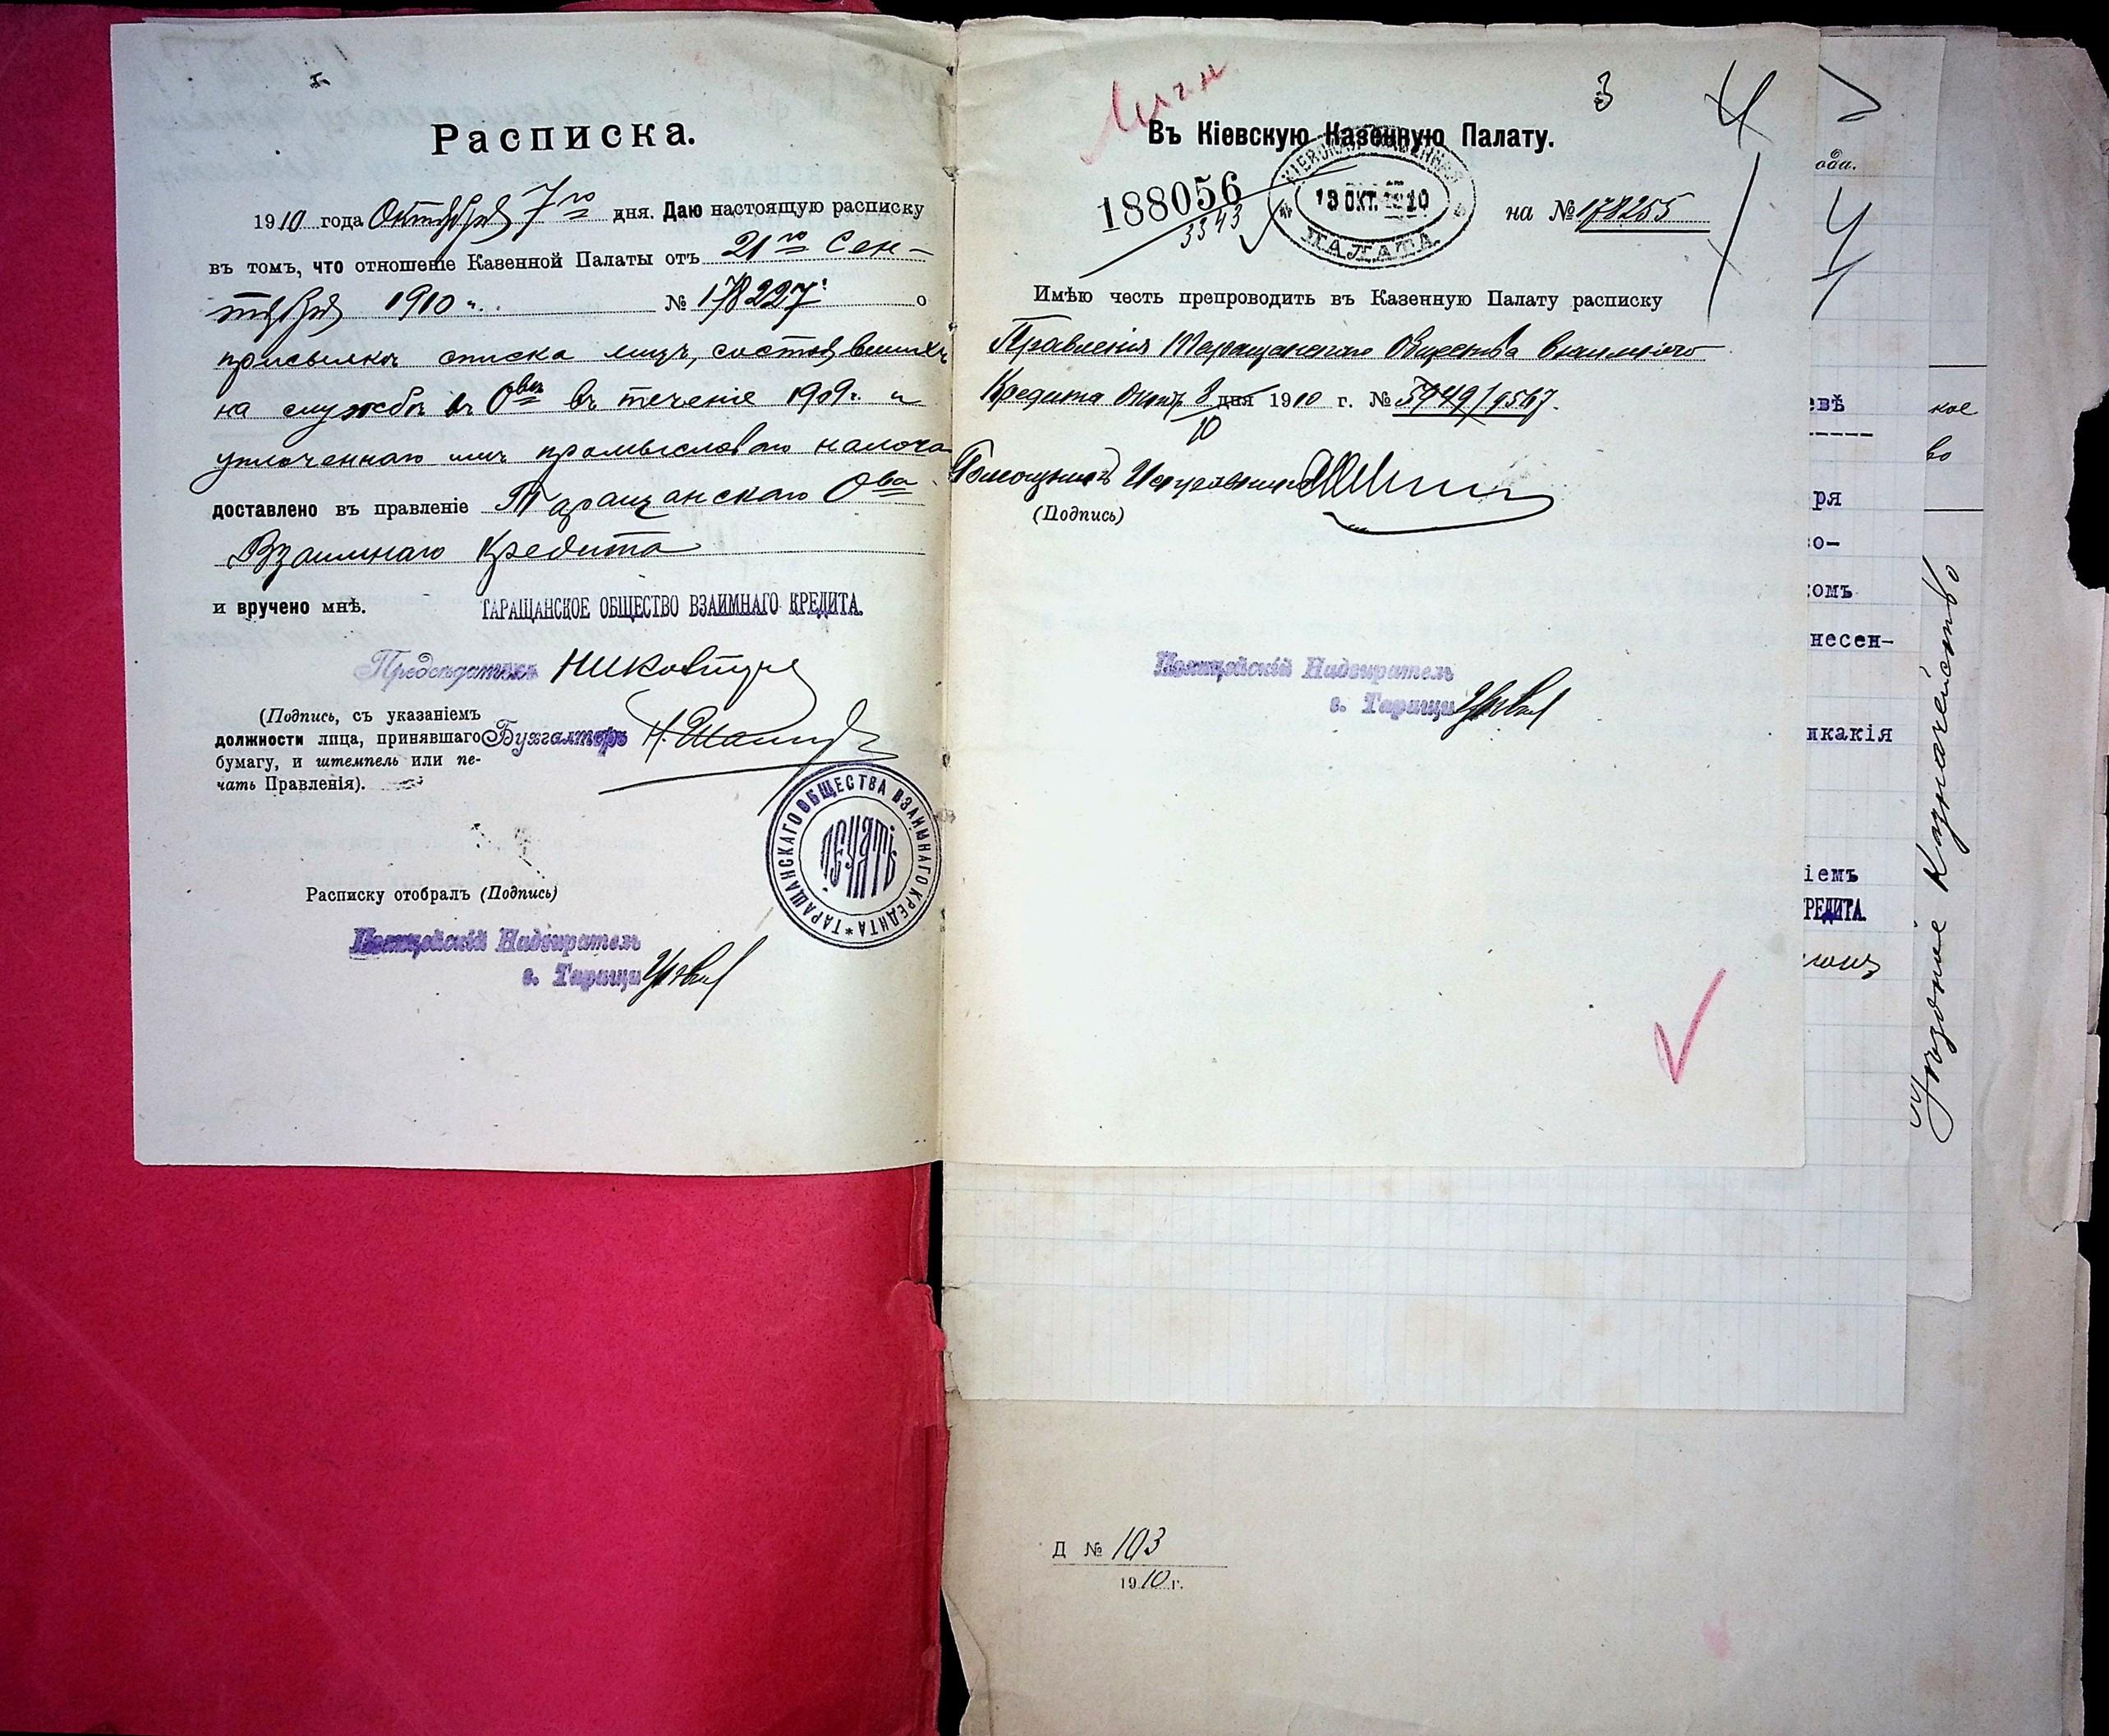 Расписка.
1910 года Октября 7го дня. Даю настоящую расписку
въ томъ, что отношеніе Казенной Палаты отъ 21го Сен-
тября 1910 г. № 178227 о
присылкѣ списка лицъ, состоявшихъ
на службѣ въ Овѣ въ теченіе 1909 г. и
уплоченнаго ими промысловаго налога
доставлено въ правленіе Таращанскаго Ова
Взаимнаго Кредита
и вручено мнѣ.
ТАРАЩАНСКОЕ ОБЩЕСТВО ВЗАИМНАГО КРЕДИТА.
Предсѣдатель
(Подпись, съ указаніемъ
должности лица, принявшаго
бумагу, и штемпель или пе-
чать Правленія).
Бухгалтеръ
ТАРАЩАНСКАГО ОБЩЕСТВА ВЗАИМНАГО КРЕДИТА *
ПЕЧАТЬ
Расписку отобралъ (Подпись)
Полицейскій Надзиратель
г. Таращи
3
Въ Кіевскую Казенную Палату.
188056
3343
КІЕВСКАЯ КАЗЕННАЯ
13 ОКТ. 1910
ПАЛАТА
на № 178255
Имѣю честь препроводить въ Казенную Палату расписку
Правленія Таращанскаго Общества Взаимнаго
Кредита Окт. 8 дня 1910 г. № 5949/9567.
10
Помощникъ Исправника
(Подпись)
Полицейскій Надзиратель
г. Таращи
ода.
евѣ
ря
о-
омъ
несен-
икакія
іемъ
РЕДИТА.
кое
во
Уѣздное Казначейство
Д № 103
1910 г.